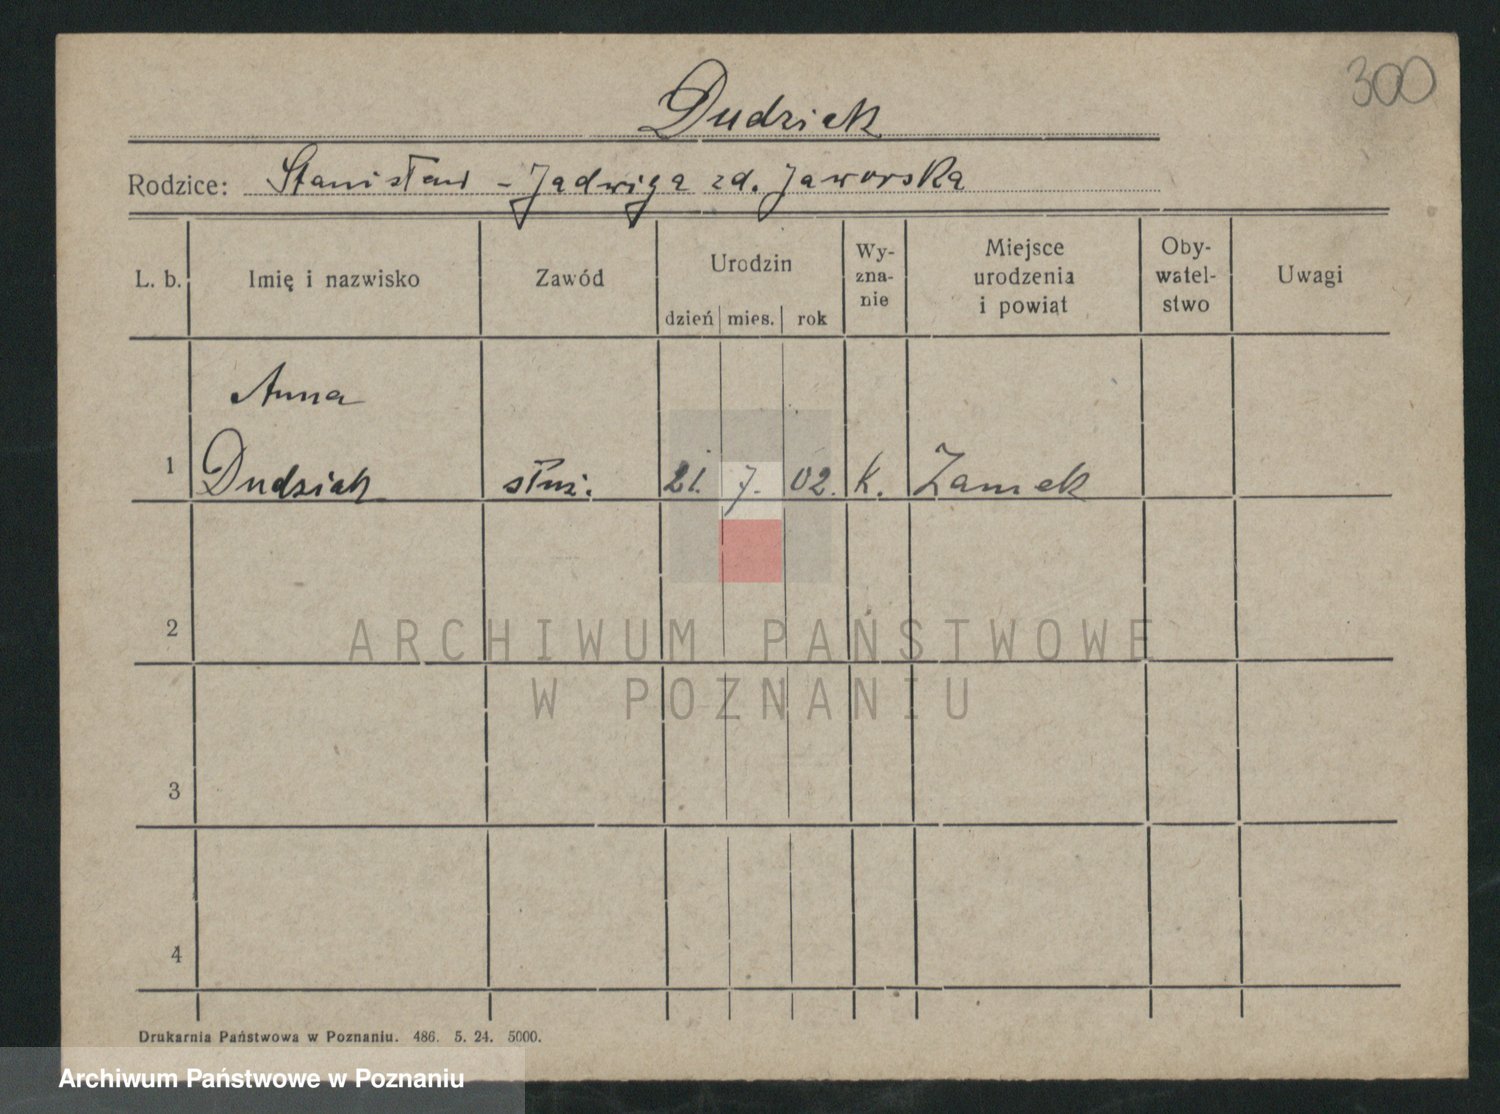 300
Dudziak
Rodzice: Stanisław - Jadwiga zd. Jaworska
L. b. Imię i nazwisko Zawód Urodzin dzień mies. rok Wy-zna-nie Miejsce urodzenia i powiat Oby-watel-stwo Uwagi
Anna
1 Dudziak służ. 21. 7. 02. K. Zamek
2
ARCHIWUM PAŃSTWOWE
W POZNANIU
3
4
Drukarnia Państwowa w Poznaniu. 486. 5. 24. 5000.
Archiwum Państwowe w Poznaniu